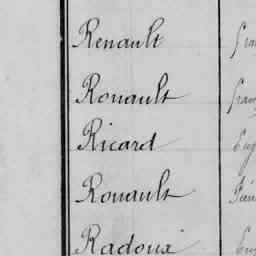 Renault
Rouault
Ricard
Rouault
Radoux